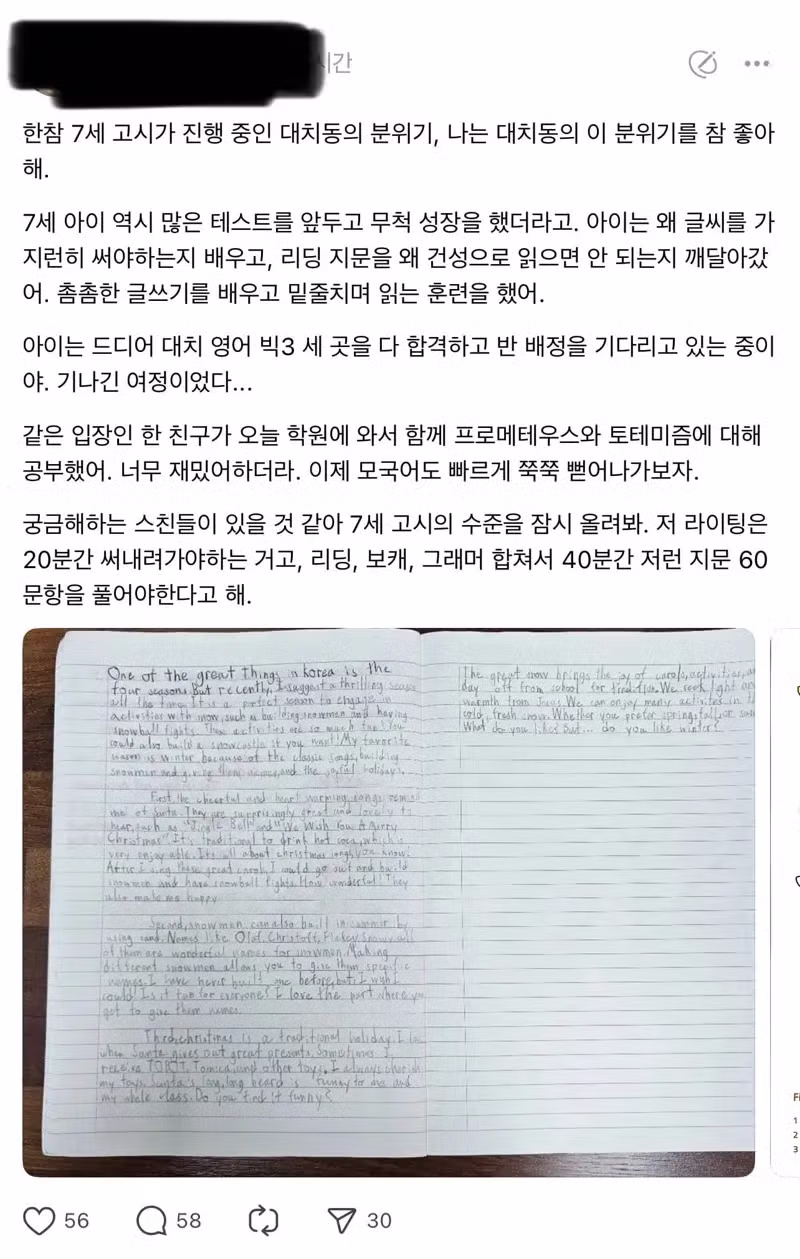 시간
한참 7세 고시가 진행 중인 대치동의 분위기, 나는 대치동의 이 분위기를 참 좋아
해.
7세 아이 역시 많은 테스트를 앞두고 무척 성장을 했더라고. 아이는 왜 글씨를 가
지런히 써야하는지 배우고, 리딩 지문을 왜 건성으로 읽으면 안 되는지 깨달아갔
어. 촘촘한 글쓰기를 배우고 밑줄치며 읽는 훈련을 했어.
아이는 드디어 대치 영어 빅3 세 곳을 다 합격하고 반 배정을 기다리고 있는 중이
야. 기나긴 여정이었다...
같은 입장인 한 친구가 오늘 학원에 와서 함께 프로메테우스와 토테미즘에 대해
공부했어. 너무 재밌어하더라. 이제 모국어도 빠르게 쭉쭉 뻗어나가보자.
궁금해하는 스친들이 있을 것 같아 7세 고시의 수준을 잠시 올려봐. 저 라이팅은
20분간 써내려가야하는 거고, 리딩, 보캐, 그래머 합쳐서 40분간 저런 지문 60
문항을 풀어야한다고 해.
One of the great things in korea is the
four seasons. But recently, I suggest a thrilling season
all the time. It is a perfect season to engage in
activities with snow, such as building snowmen and having
snowball fights. These activities are so much fun! You
could also build a snowcastle if you want! My favorite
season is winter because of the classic songs, building
snowmen and giving them names, and the joyful holidays.
First, the cheerful and heart warming songs remind
me of Santa. They are surprisingly great and lovely to
hear, such as "Jingle Bell" and "We Wish You A Merry
Christmas" It's traditional to drink hot coco, which is
very enjoy able. Its all about christmas songs, you know!
After I sing these great carols, I could go out and build
snowmen and have snowball fights. How wonderful! They
also make me happy.
Second, snowmen can also built in summer by
using sand. Names like Olaf, Christoff, Flakey, Snowy, all
of them are wonderful names for snowmen. Making
different snowmen allows you to give them specific
names. I have never built one before, but I wish I
could. Is it fun for everyone? I love the part where you
get to give them names.
Third, christmas is a traditional holiday. I
when Santa gives out great presents. Sometimes I
receive TOBOT, Tomica, and other toys. I always cherish
my toys. Santa's long, long beard is funny to me and
my whole class. Do you find it funny?
The great snow brings the joy of carols, activities,
day off from school for tradition. We seek light and
warmth from Jesus. We can enjoy many activities in
cold, fresh snow. Whether you prefer spring, fall, or
What do you like? But... do you like winter?
Fi
1
2
3
56
58
30